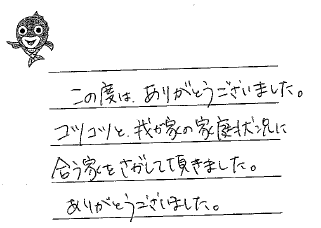 この度は、ありがとうございました。
コツコツと、我が家の家庭状況に
合う家をさがして頂きました。
ありがとうございました。